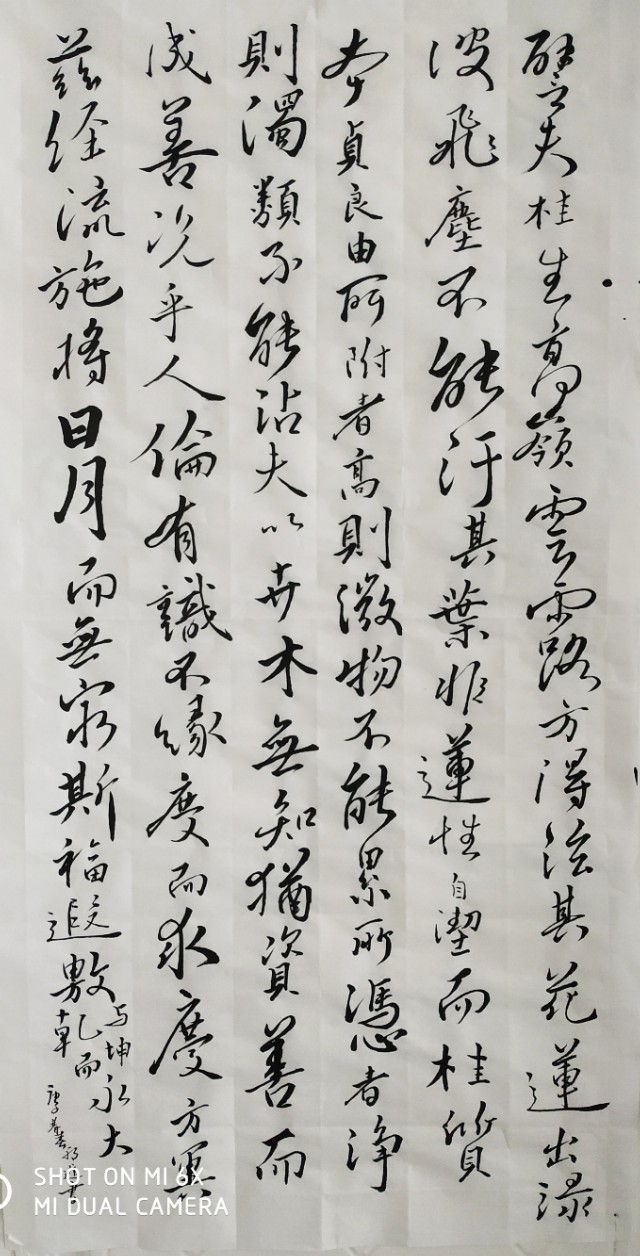 譬夫桂生高嶺雲露方得泫其花蓮出淥
波飛塵不能汙其葉非蓮性自潔而桂質
本貞良由所附者高則微物不能累所憑者淨
則濁類不能沾夫以卉木無知猶資善而
成善況乎人倫有識不緣慶而求慶方冀
茲經流施將日月而無窮斯福遐敷
与乾坤而永大
SHOT ON MI 6X
MI DUAL CAMERA